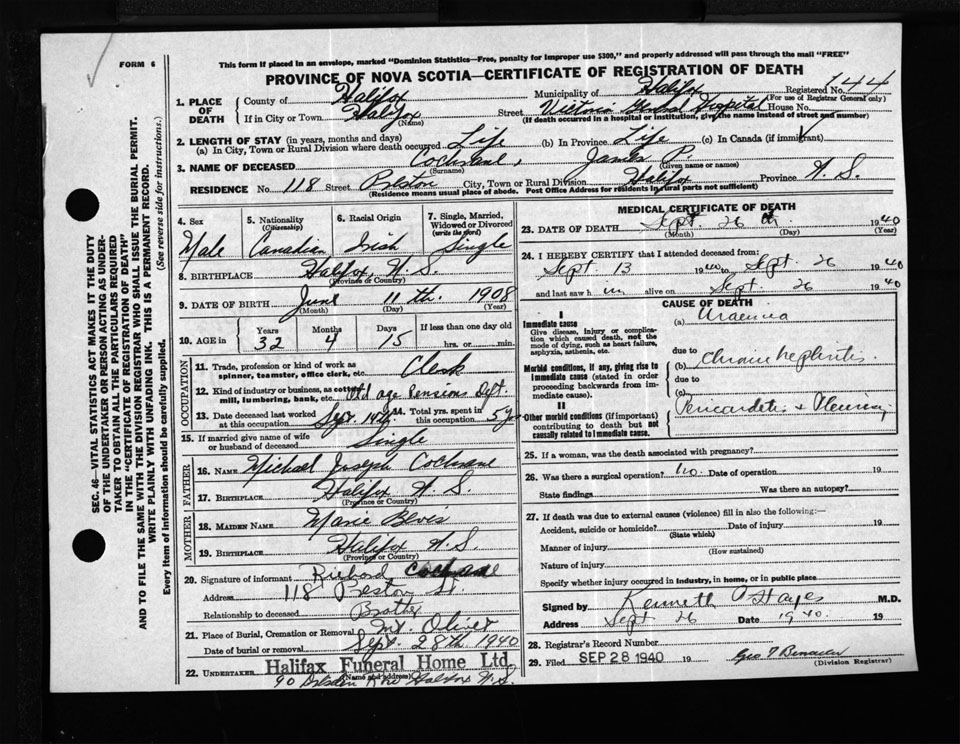 FORM 6
This form if placed in an envelope, marked "Dominion Statistics—Free, penalty for improper use $300," and properly addressed will pass through the mail "FREE"
PROVINCE OF NOVA SCOTIA—CERTIFICATE OF REGISTRATION OF DEATH
Registered No. 144
(For use of Registrar General only)
1. PLACE OF DEATH
County of Halifax Municipality of Halifax
If in City or Town Halifax Street Victoria General Hospital House No.
(Name) (If death occurred in a hospital or institution, give the name instead of street and number)
2. LENGTH OF STAY (in years, months and days)
(a) In City, Town or Rural Division where death occurred Life (b) In Province Life (c) In Canada (if immigrant)
3. NAME OF DECEASED Cochrane, James P.
(Surname) (Given name or names)
RESIDENCE No. 118 Street City, Town or Rural Division Halifax Province N. S.
(Residence means usual place of abode. Post Office Address for residents in rural parts not sufficient)
4. Sex Male
5. Nationality (Citizenship) Canadian
6. Racial Origin Irish
7. Single, Married, Widowed or Divorced (write the word) Single
8. BIRTHPLACE Halifax, N. S.
(Province or Country)
9. DATE OF BIRTH June 11th. 1908
(Month) (Day) (Year)
10. AGE in Years 32 Months 4 Days 15 If less than one day old hrs. or min.
OCCUPATION
11. Trade, profession or kind of work as spinner, teamster, office clerk, etc. Clerk
12. Kind of industry or business, as cotton mill, lumbering, bank, etc. Old age Pensions Dept.
13. Date deceased last worked at this occupation Sept. 14. Total yrs. spent in this occupation 5
15. If married give name of wife or husband of deceased Single
FATHER
16. NAME Michael Joseph Cochrane
17. BIRTHPLACE Halifax N. S.
(Province or Country)
MOTHER
18. MAIDEN NAME Marie
19. BIRTHPLACE Halifax N. S.
(Province or Country)
20. Signature of informant Richard Cochrane
Address 118 St.
Relationship to deceased Brother
21. Place of Burial, Cremation or Removal Mt. Olivet
Date of burial or removal Sept. 28th. 1940
22. UNDERTAKER Halifax Funeral Home Ltd.
(Name and address)
90 Halifax N. S.
MEDICAL CERTIFICATE OF DEATH
23. DATE OF DEATH Sept. 26th. 1940
(Month) (Day) (Year)
24. I HEREBY CERTIFY that I attended deceased from:
Sept. 13 1940 to Sept. 26 1940
and last saw him alive on Sept. 26 1940
CAUSE OF DEATH
I
Immediate cause
Give disease, injury or complication which caused death, not the mode of dying, such as heart failure, asphyxia, asthenia, etc.
(a) Uraemia
due to
Morbid conditions, if any, giving rise to immediate cause (stated in order proceeding backwards from immediate cause).
(b) Chronic Nephritis.
due to
(c)
II
Other morbid conditions (if important) contributing to death but not causally related to immediate cause.
Pericarditis & Pleurisy
25. If a woman, was the death associated with pregnancy?
26. Was there a surgical operation? no. Date of operation 19
State findings Was there an autopsy?
27. If death was due to external causes (violence) fill in also the following:—
Accident, suicide or homicide? Date of injury 19
(State which)
Manner of injury
(How sustained)
Nature of injury
Specify whether injury occurred in industry, in home, or in public place
Signed by Kenneth Hayes M.D.
Address Sept. 26 Date 1940.
28. Registrar's Record Number
29. Filed SEP 28 1940 19 Geo
(Division Registrar)
SEC. 46—VITAL STATISTICS ACT MAKES IT THE DUTY OF THE UNDERTAKER OR PERSON ACTING AS UNDERTAKER TO OBTAIN ALL THE PARTICULARS REQUIRED IN THE "CERTIFICATE OF REGISTRATION OF DEATH" AND TO FILE THE SAME WITH THE DIVISION REGISTRAR WHO SHALL ISSUE THE BURIAL PERMIT.
WRITE PLAINLY WITH UNFADING INK. THIS IS A PERMANENT RECORD.
Every item of information should be carefully supplied. (See reverse side for instructions.)